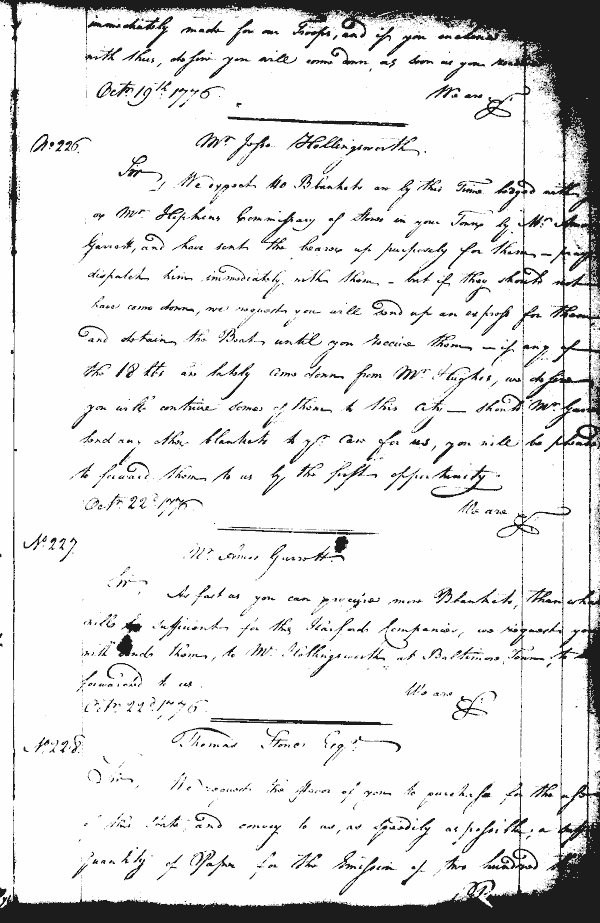 immediately made for our Troops, and if you
with this, desire you will come down as soon as you
Octr. 19th 1776. We are &c.
No. 226. Mr. Jesse Hollingsworth.
Sir, We expect 40 Blankets are by this Time lodged with
or Mr. Hopkins Commissary of Stores in your Town by Mr. Amos
Garrett, and have sent the bearer up purposely for them – pray
dispatch him immediately with them – but if they should not
have come down, we request you will send up an express for them
and detain the Boat until you receive them – if any of
the 18 lbs. are lately come down from Mr. Hughes, we desire
you will contrive some of them to this City – should Mr. Garrett
send any other blankets to yr. Care for us, you will be pleased
to forward them to us by the first opportunity.
Octr. 22d. 1776 We are &c.
No. 227. Mr. Amos Garrett.
Sir, As fast as you can procure more Blankets, than what
will be sufficient for the Harford Companies, we request you
will send them, to Mr. Hollingsworth at Baltimore Town, to be
forwarded to us. We are &c.
Octr. 22d. 1776.
No. 228. Thomas Stone Esqr.
Sir, We request the favor of you to purchase for the use
of this State, and convey to us, as speedily as possible, a
quantity of Paper for the Emission of two hundred